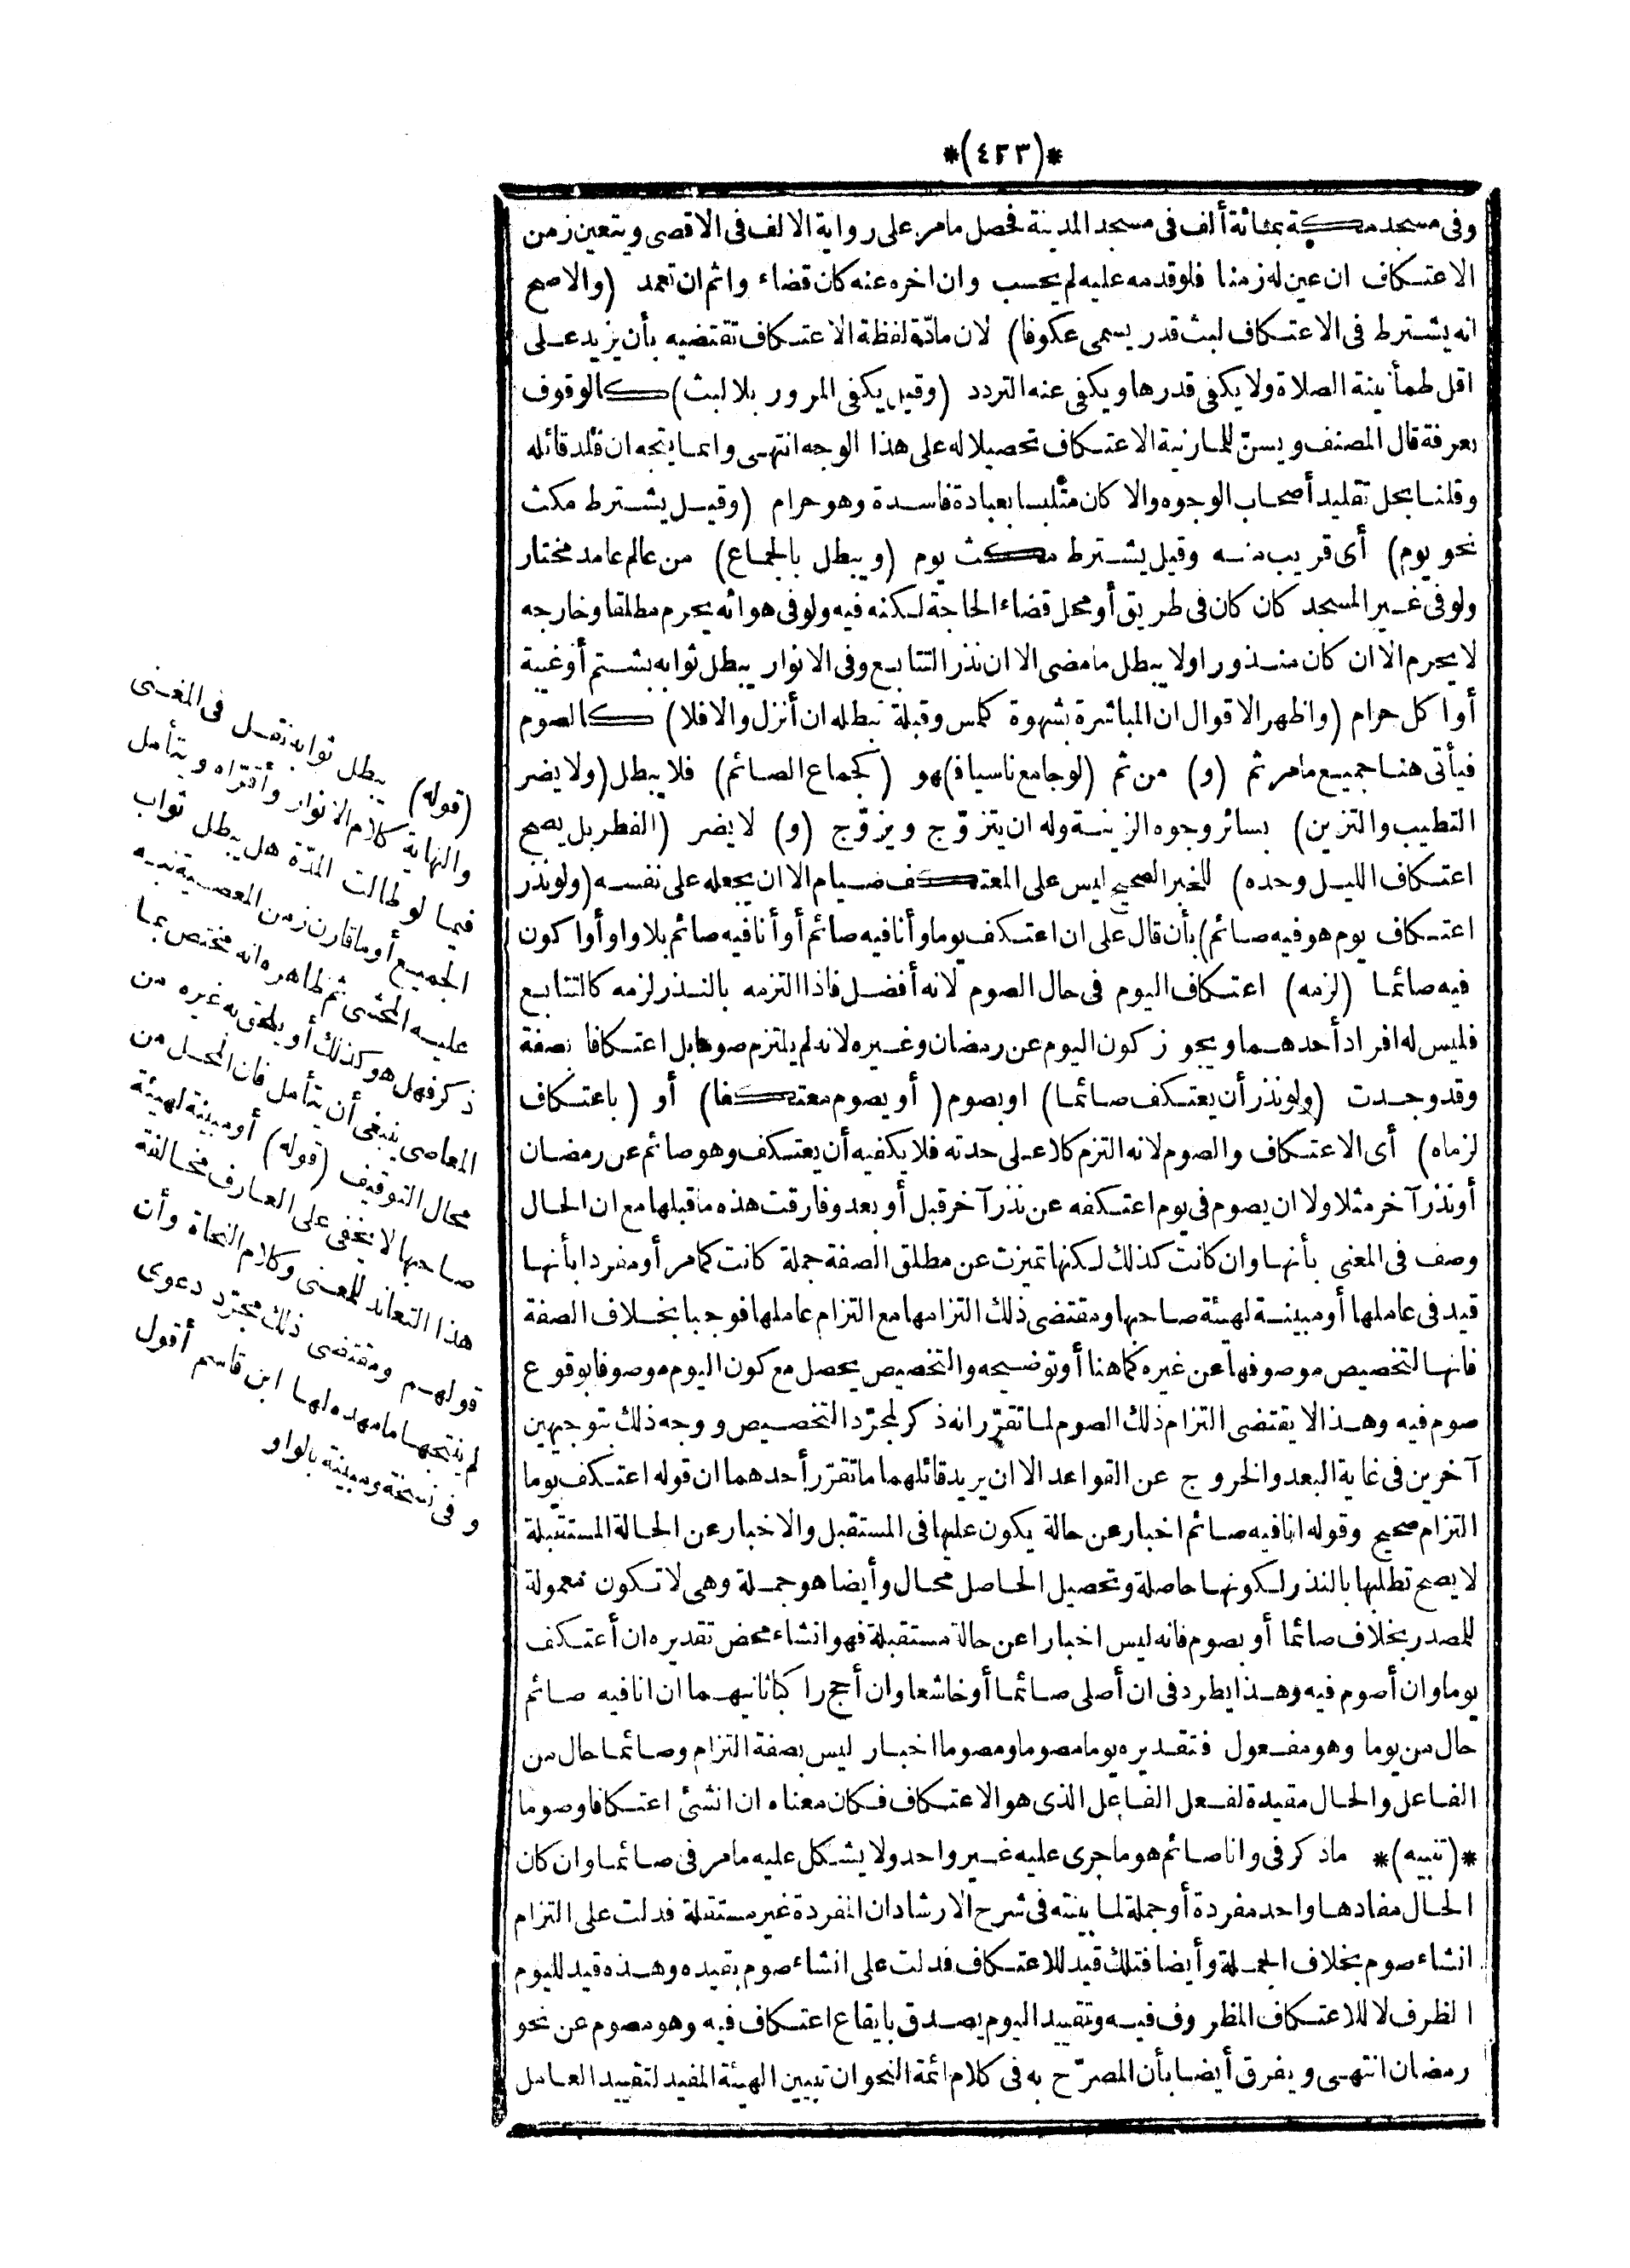 *(٤٢٣)*
وفى مسجد مكة بمائة ألف فى مسجد المدينة فحصل مامر على رواية الالف فى الاقصى ويتعين زمن
الاعتكاف ان عين له زمنا فلو قدمه عليه لم يحسب وان اخره عنه كان قضاء واثم ان تعمد (والاصح
انه يشترط فى الاعتكاف لبث قدر يسمى عكوفا) لان مادّة لفظة الاعتكاف تقتضيه بأن يزيد على
اقل طمأنينة الصلاة ولا يكفى قدرها ويكفى عنه التردد (وقيل يكفى المرور بلا لبث) كالوقوف
بعرفة قال المصنف ويسنّ للمار نية الاعتكاف تحصيلا له على هذا الوجه انتهى وانما يتجه ان قلد قائله
وقلنا بحل تقليد أصحاب الوجوه والا كان متلبسا بعبادة فاسدة وهو حرام (وقيل يشترط مكث
نحو يوم) أى قريب منه وقيل يشترط مكث يوم (ويبطل بالجماع) من عالم عامد مختار
ولو فى غير المسجد كان كان فى طريق أو محل قضاء الحاجة لكنه فيه ولو فى هوائه يحرم مطلقا وخارجه
لا يحرم الا ان كان منذورا ولا يبطل مامضى الا ان نذر التتابع وفى الانوار يبطل ثوابه بشتم أو غيبة
أو اكل حرام (واظهر الاقوال ان المباشرة بشهوة كلمس وقبلة تبطله ان أنزل والا فلا) كالصوم
فيأتى هنا جميع مامر ثم (و) من ثم (لو جامع ناسيا ف) هو (كجماع الصائم) فلا يبطل (ولا يضر
التطيب والتزين) بسائر وجوه الزينة وله ان يتزوّج ويزوّج (و) لا يضر (الفطر بل يصح
اعتكاف الليل وحده) للخبر الصحيح ليس على المعتكف صيام الا ان يجعله على نفسه (ولو نذر
اعتكاف يوم هو فيه صائم) بأن قال على ان اعتكف يوما وأنا فيه صائم أو أنا فيه صائم بلا واو أو اكون
فيه صائما (لزمه) اعتكاف اليوم فى حال الصوم لانه أفضل فاذا التزمه بالنذر لزمه كالتتابع
فليس له افراد أحدهما ويجوز كون اليوم عن رمضان وغيره لانه لم يلتزم صوما بل اعتكافا بصفة
وقد وجدت (ولو نذر أن يعتكف صائما) او بصوم (أو يصوم معتكفا) أو (باعتكاف
لزماه) أى الاعتكاف والصوم لانه التزم كلا على حدته فلا يكفيه أن يعتكف وهو صائم عن رمضان
أو نذر آخر مثلا ولا ان يصوم فى يوم اعتكفه عن نذر آخر قبل أو بعد وفارقت هذه ماقبلها مع ان الحال
وصف فى المعنى بأنها وان كانت كذلك لكنها تميزت عن مطلق الصفة جملة كانت كمامر أو مفردا بأنها
قيد فى عاملها أو مبينة لهيئة صاحبها ومقتضى ذلك التزامها مع التزام عاملها فوجبا بخلاف الصفة
فانها لتخصيص موصوفها عن غيره كما هنا أو توضيحه والتخصيص يحصل مع كون اليوم موصوفا بوقوع
صوم فيه وهذا لا يقتضى التزام ذلك الصوم لما تقرّر انه ذكر لمجرّد التخصيص ووجه ذلك بتوجيهين
آخرين فى غاية البعد والخروج عن القواعد الا ان يريد قائلهما ماتقرّر أحدهما ان قوله اعتكف يوما
التزام صحيح وقوله انا فيه صائم اخبار عن حالة يكون عليها فى المستقبل والاخبار عن الحالة المستقبلة
لا يصح تطلبها بالنذر لكونها حاصلة وتحصيل الحاصل محال وأيضا هو جملة وهى لا تكون معمولة
للمصدر بخلاف صائما أو بصوم فانه ليس اخبارا عن حالة مستقبلة فهو انشاء محض تقديره ان أعتكف
يوما وان أصوم فيه وهذا يطرد فى ان أصلى صائما أو خاشعا وان أحج راكبا ثانيهما ان انا فيه صائم
حال من يوما وهو مفعول فتقديره يوما مصوما ومصوما اخبار ليس بصفة التزام وصائما حال من
الفاعل والحال مقيدة لفعل الفاعل الذى هو الاعتكاف فكان معناه ان انشئ اعتكافا وصوما
*(تنبيه)* ماذكر فى وانا صائم هو ماجرى عليه غير واحد ولا يشكل عليه مامر فى صائما وان كان
الحال مفادها واحد مفردة أو جملة لما بينته فى شرح الارشاد ان المفردة غير مستقلة فدلت على التزام
انشاء صوم بخلاف الجملة وأيضا فتلك قيد للاعتكاف فدلت على انشاء صوم بقيده وهذه قيد لليوم
الظرف لا للاعتكاف المظروف فيه وتقييد اليوم يصدق بايقاع اعتكاف فيه وهو مصوم عن نحو
رمضان انتهى ويفرق أيضا بأن المصرّح به فى كلام ائمة النحو ان تبيين الهيئة المفيد لتقييد العامل
(قوله) يبطل ثوابه نقل فى المغنى
والنهاية كلام الانوار وأقرّاه ويتأمل
فيما لو طالت المدّة هل يبطل ثواب
الجميع أو ماقارن زمن المعصية نبه
عليه المحشى ثم ظاهره انه مختص بما
ذكر فهل هو كذلك أو يلحق به غيره من
المعاصى ينبغى أن يتأمل فان المحل من
محال التوقيف (قوله) أو مبينة لهيئة
صاحبها لا يخفى على العارف مخالفة
هذا التعاند للمعنى وكلام النحاة وأن
قولهم ومقتضى ذلك مجرّد دعوى
لم ينتجها مامهده لها ابن قاسم أقول
وفى نسخة ومبينة بالواو